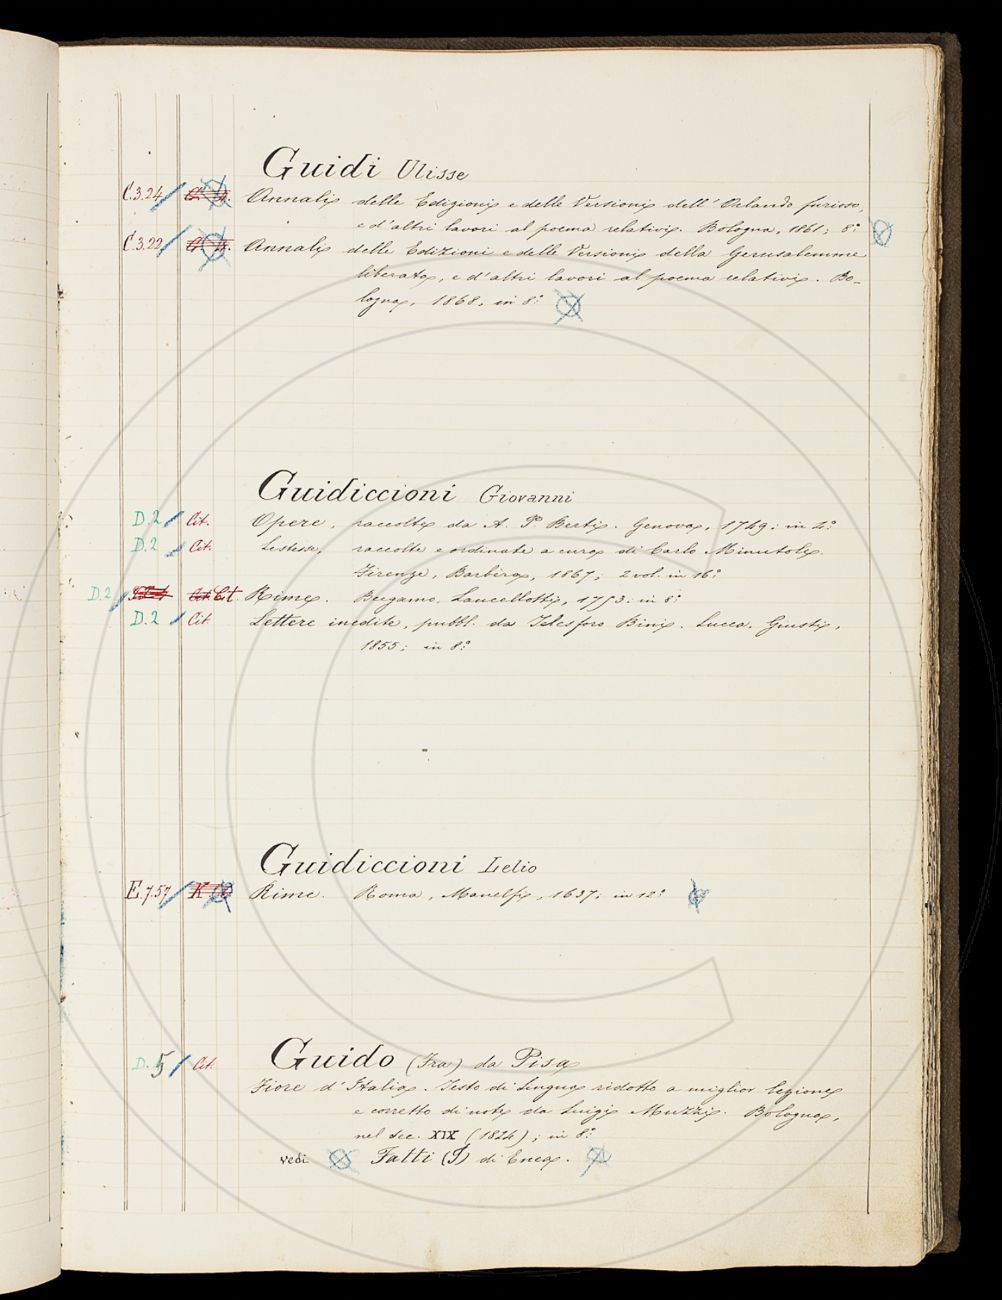 Guidi Ulisse
C.3.24 Annali delle Edizioni e delle Versioni dell' Orlando furioso,
e d'altri lavori al poema relativi. Bologna, 1861; 8.°
C.3.22 Annali delle Edizioni e delle Versioni della Gerusalemme
liberata, e d'altri lavori al poema relativi. Bo-
logna, 1868, in 8.°
Guidiccioni Giovanni
D.2 Cit. Opere, raccolte da A. P. Berti. Genova, 1749; in 4.°
D.2 Cit. Le stesse, raccolte e ordinate a cura di Carlo Minutoli.
Firenze, Barbèra, 1867; 2 vol. in 16.°
D.2 Cit. Rime. Bergamo, Lancellotti, 1753. in 8.°
D.2 Cit. Lettere inedite, pubbl. da Telesforo Bini. Lucca, Giusti,
1855; in 8.°
Guidiccioni Lelio
E.7.57 Rime. Roma, Manelfi, 1637; in 12.°
Guido (Fra) da Pisa
D.5 Cit. Fiore d'Italia. Testo di lingua ridotto a miglior lezione
e corretto di note da Luigi Muzzi. Bologna,
nel sec. XIX (1824); in 8.°
vedi Fatti (I) di Enea.